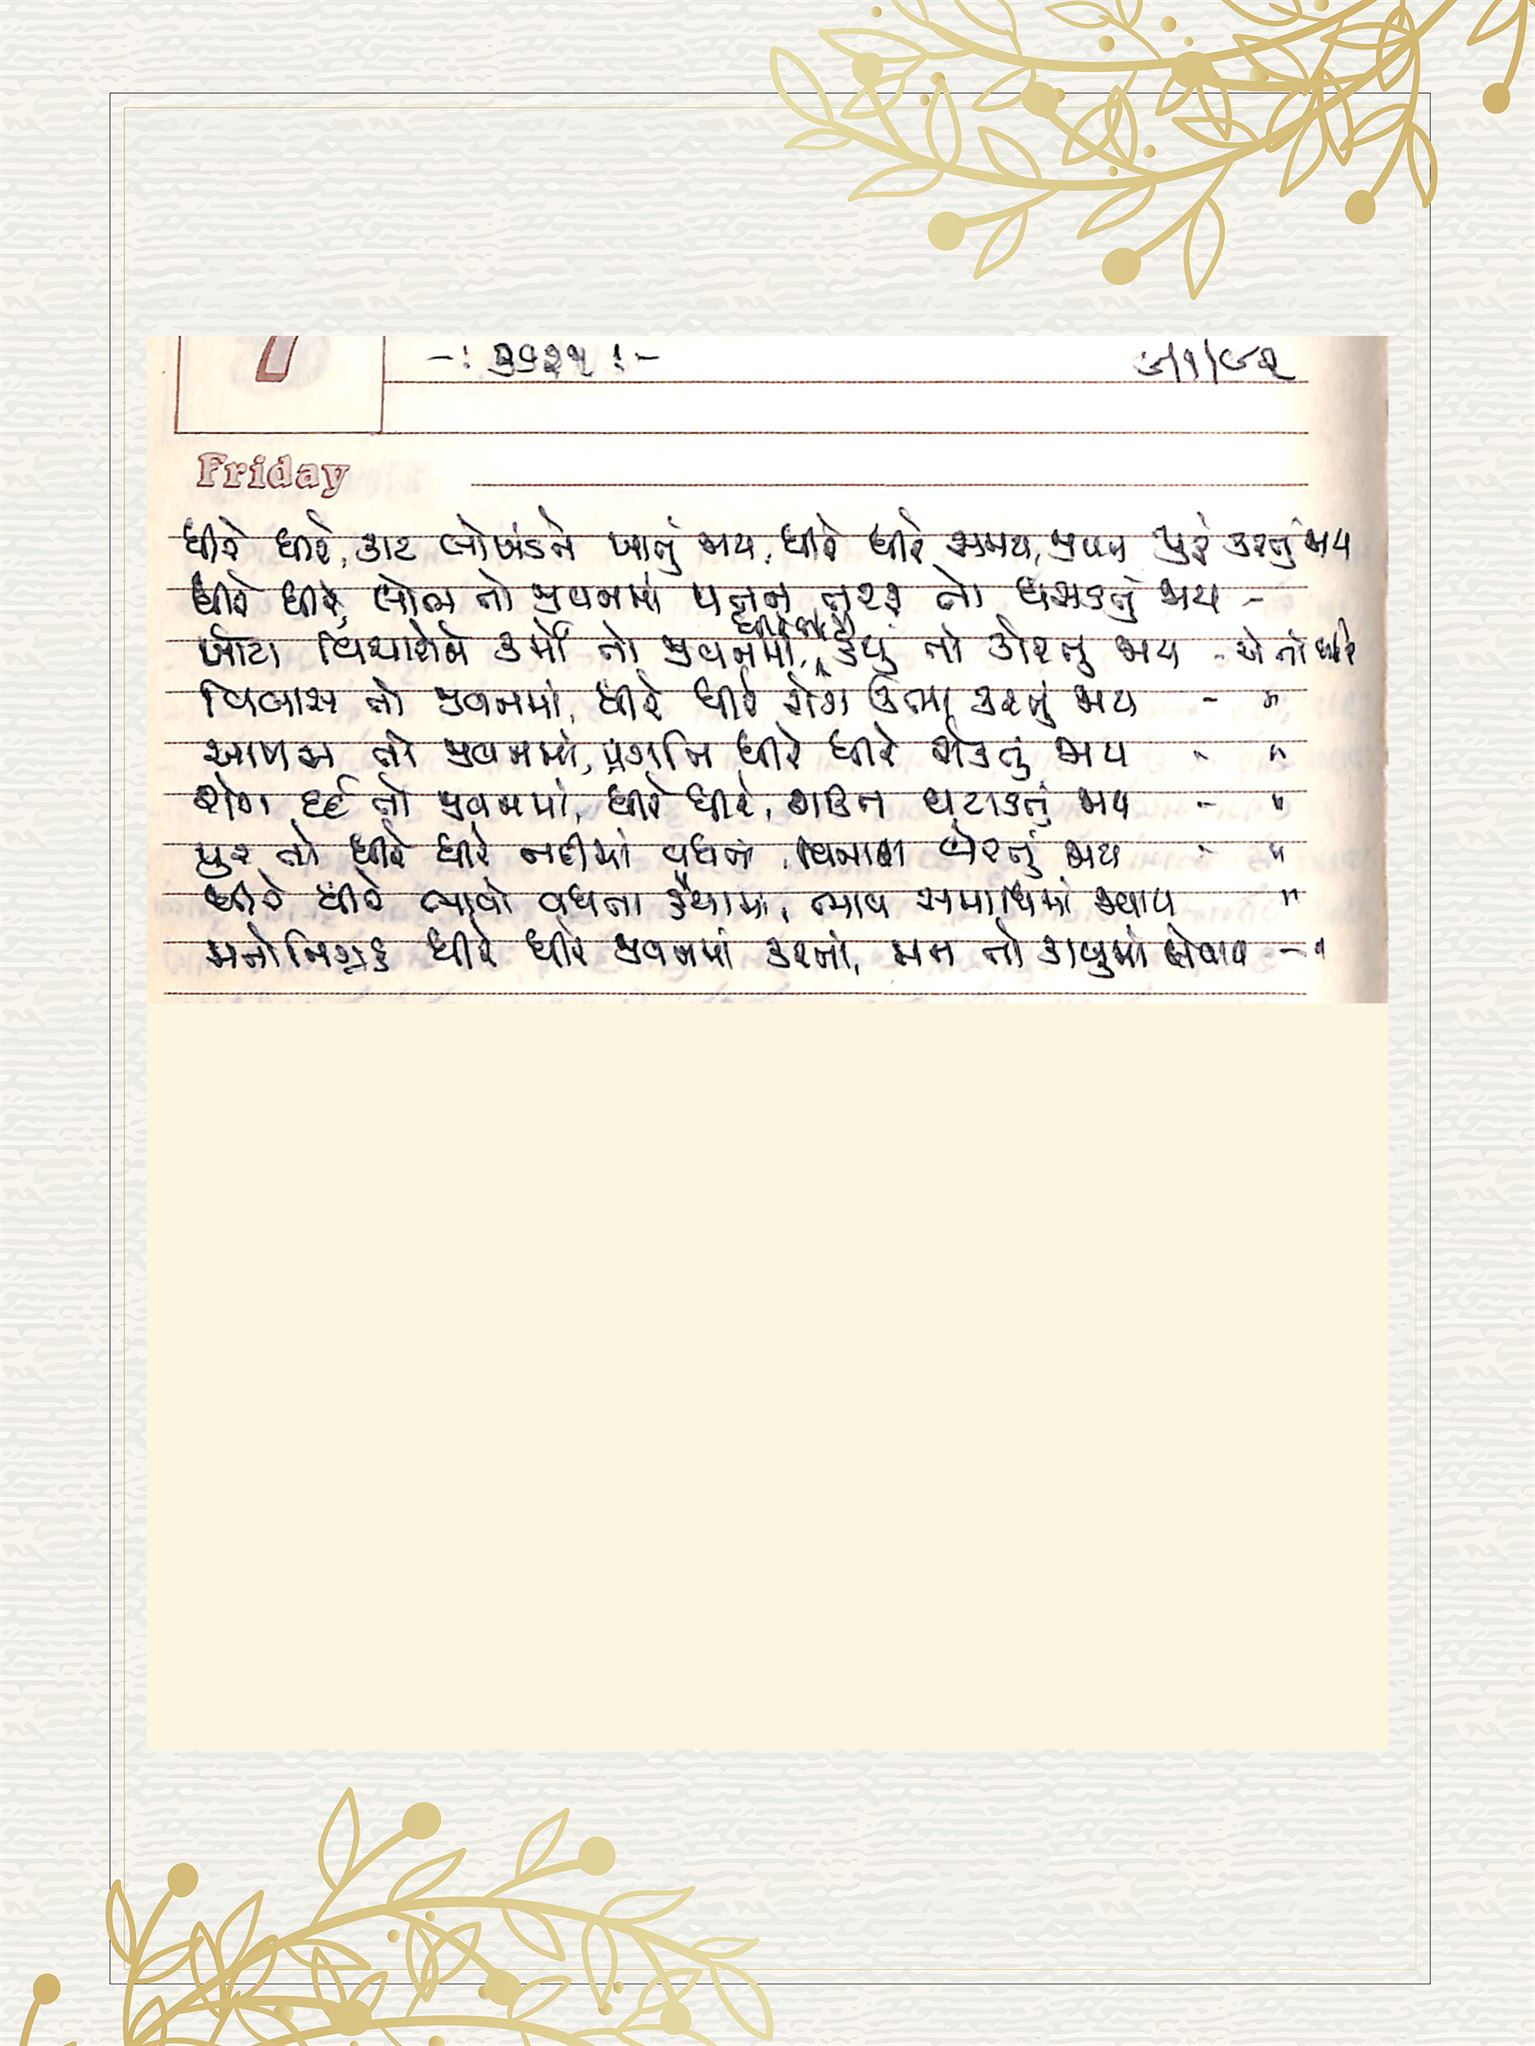 7
-: ૬૬૨૫ :- ૭/૧/૯૨
Friday
ધીરે ધીરે, કાટ લોખંડને ખાતું જાય, ધીરે ધીરે સમય, જીવન પુરું કરતું જાય
ધીરે ધીરે, લોભ તો જીવનમાં પતન તરફ તો ધસડતું જાય -
ખોટા વિચારોને કર્મો તો જીવનમાં, ધીરે ધીરે હૈયું તો કોરતું જાય - એ તો ધીરે
વિલાસ તો જીવનમાં, ધીરે ધીરે રોગ ઊભા કરતું જાય - "
આળસ તો જીવનમાં, પ્રગતિ ધીરે ધીરે રોકતું જાય - "
રોગ દર્દ તો જીવનમાં, ધીરે ધીરે, શક્તિ ઘટાડતું જાય - "
પુર તો ધીરે ધીરે નદીમાં વધતાં, વિનાશ વેરતું જાય - "
ધીરે ધીરે ભાવો વધતા હૈયામાં, ભાવ સમાધિમાં ડૂબાય "
મનોનિગ્રહ ધીરે ધીરે જીવનમાં કરતાં, મન તો કાબુમાં લેવાય - "